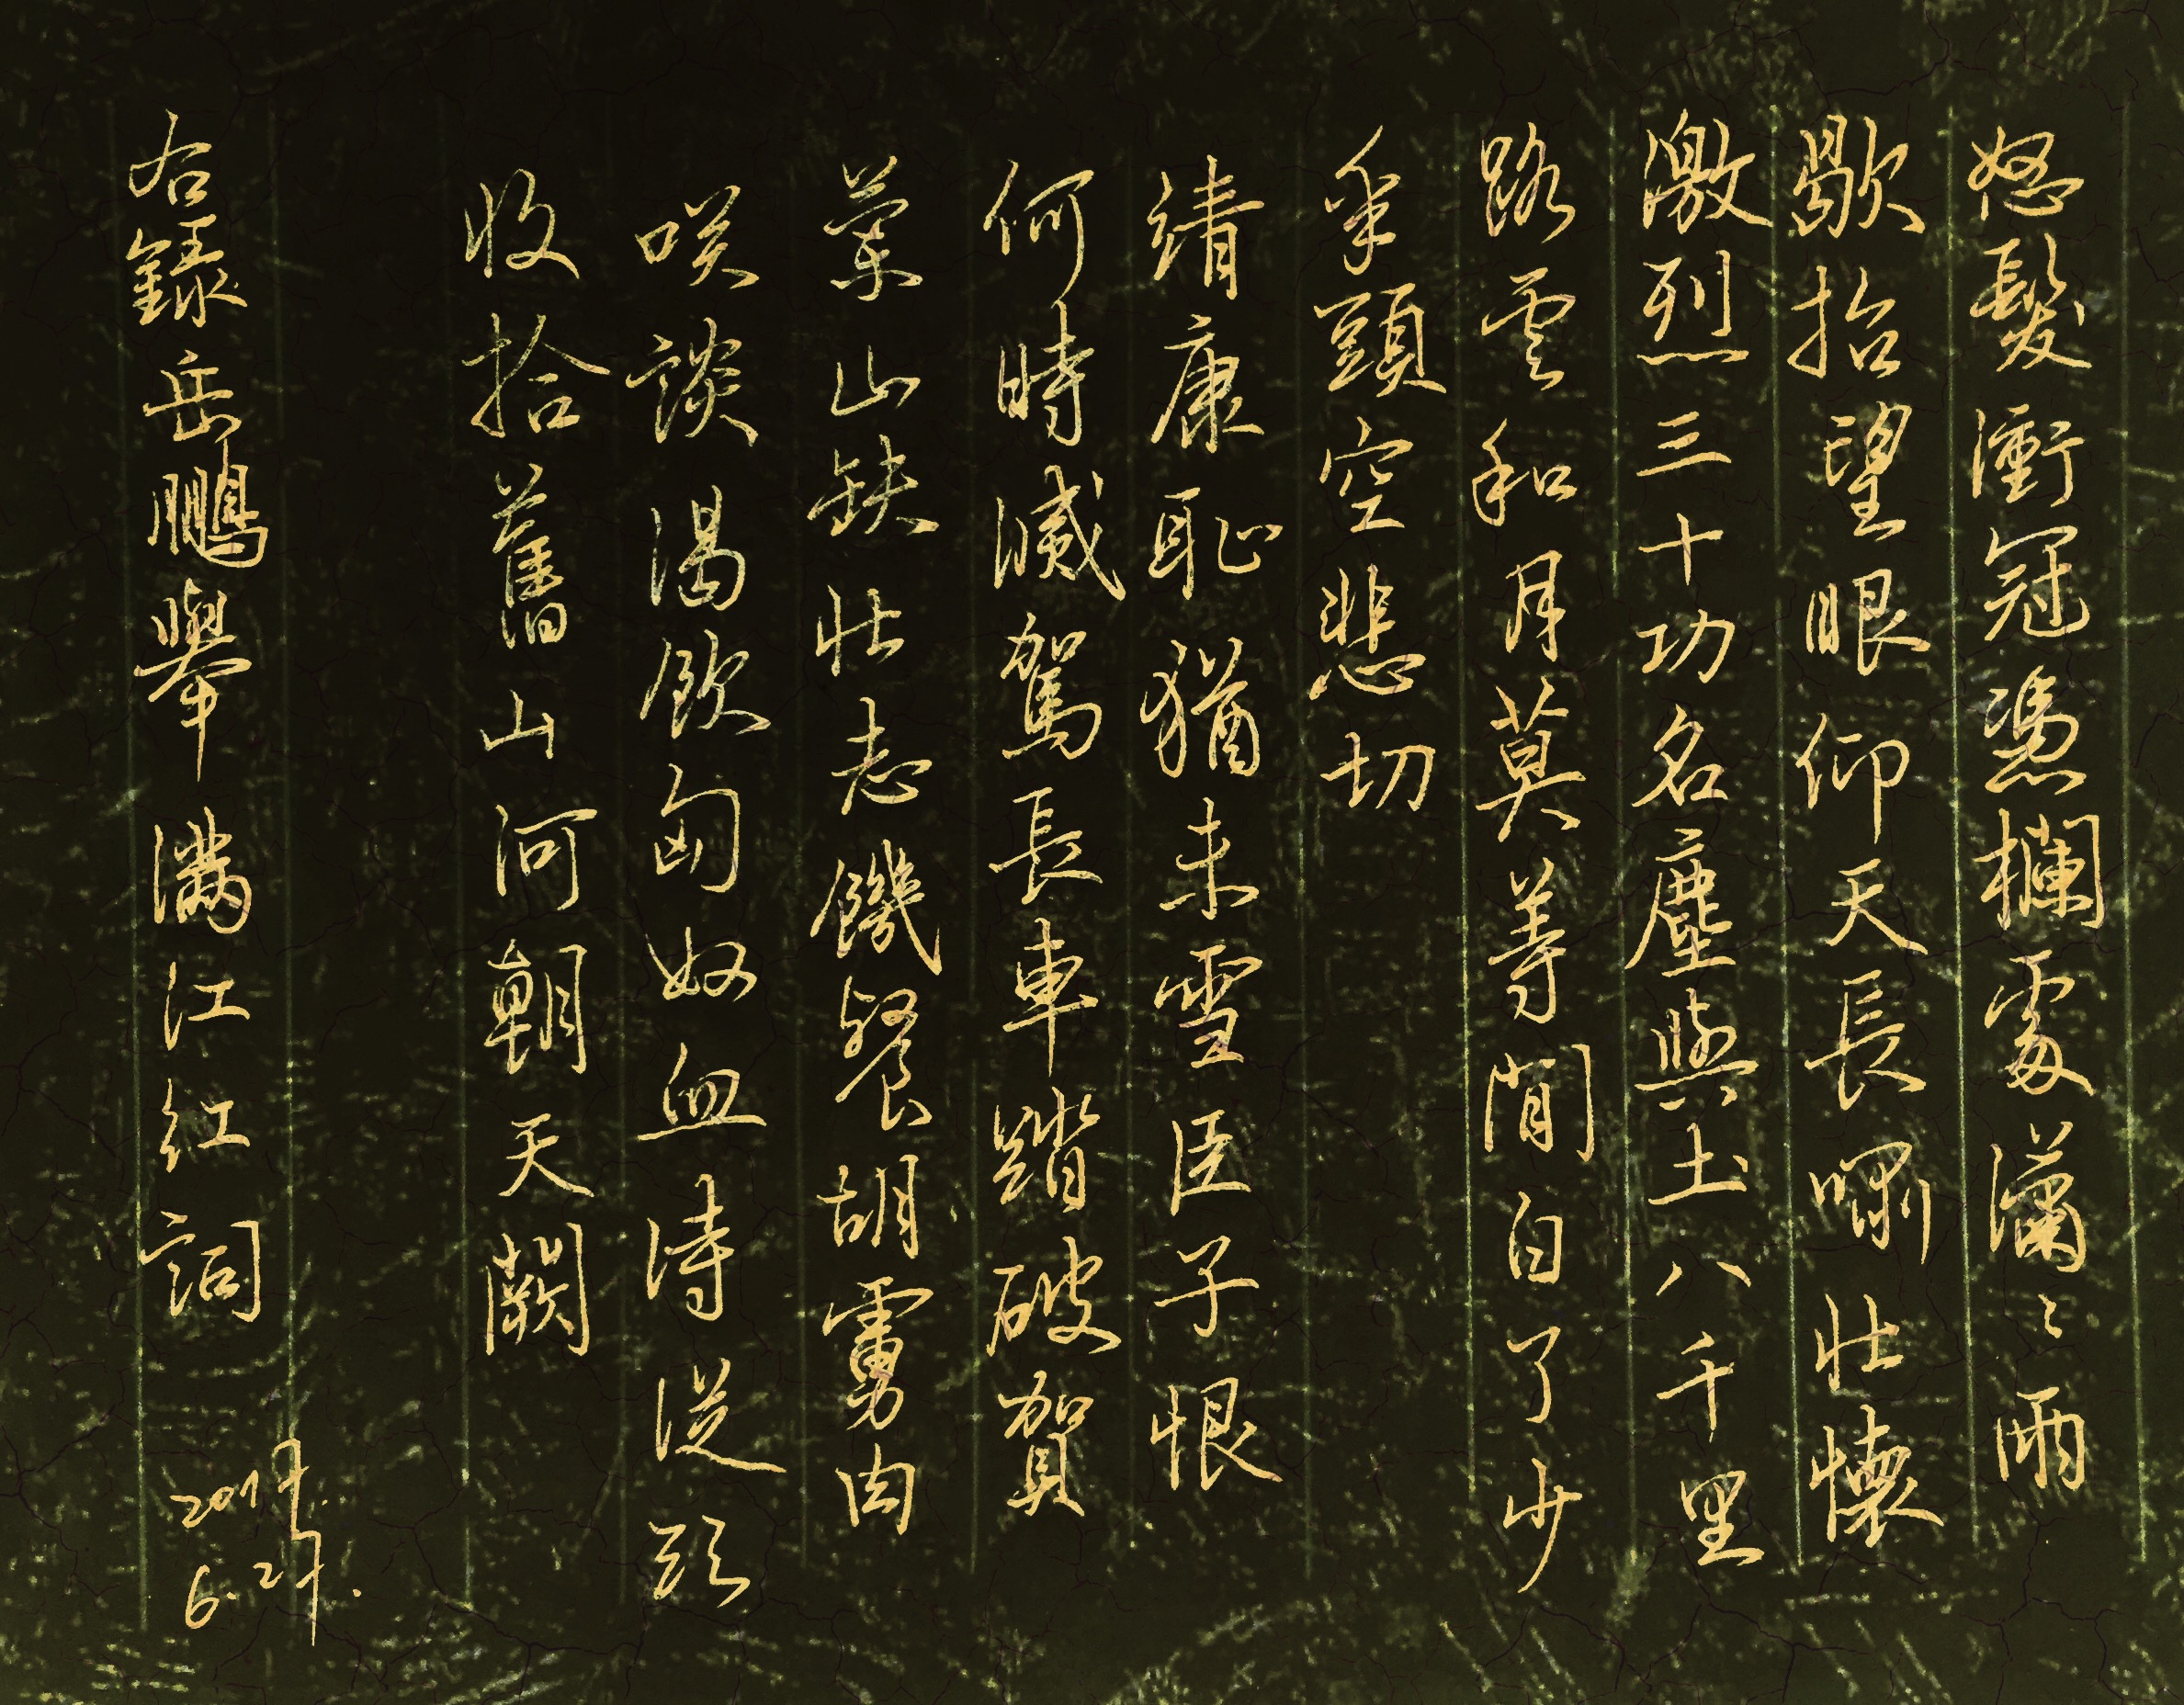 怒髮衝冠憑欄處瀟々雨
歇抬望眼仰天長嘯壯懷
激烈三十功名塵與土八千里
路雲和月莫等閒白了少
年頭空悲切
靖康恥猶未雪臣子恨
何時滅駕長車踏破賀
蘭山缺壯志饑餐胡虜肉
咲談渴飲匈奴血待從頭
收拾舊山河朝天闕
右錄岳鵬舉滿江紅詞